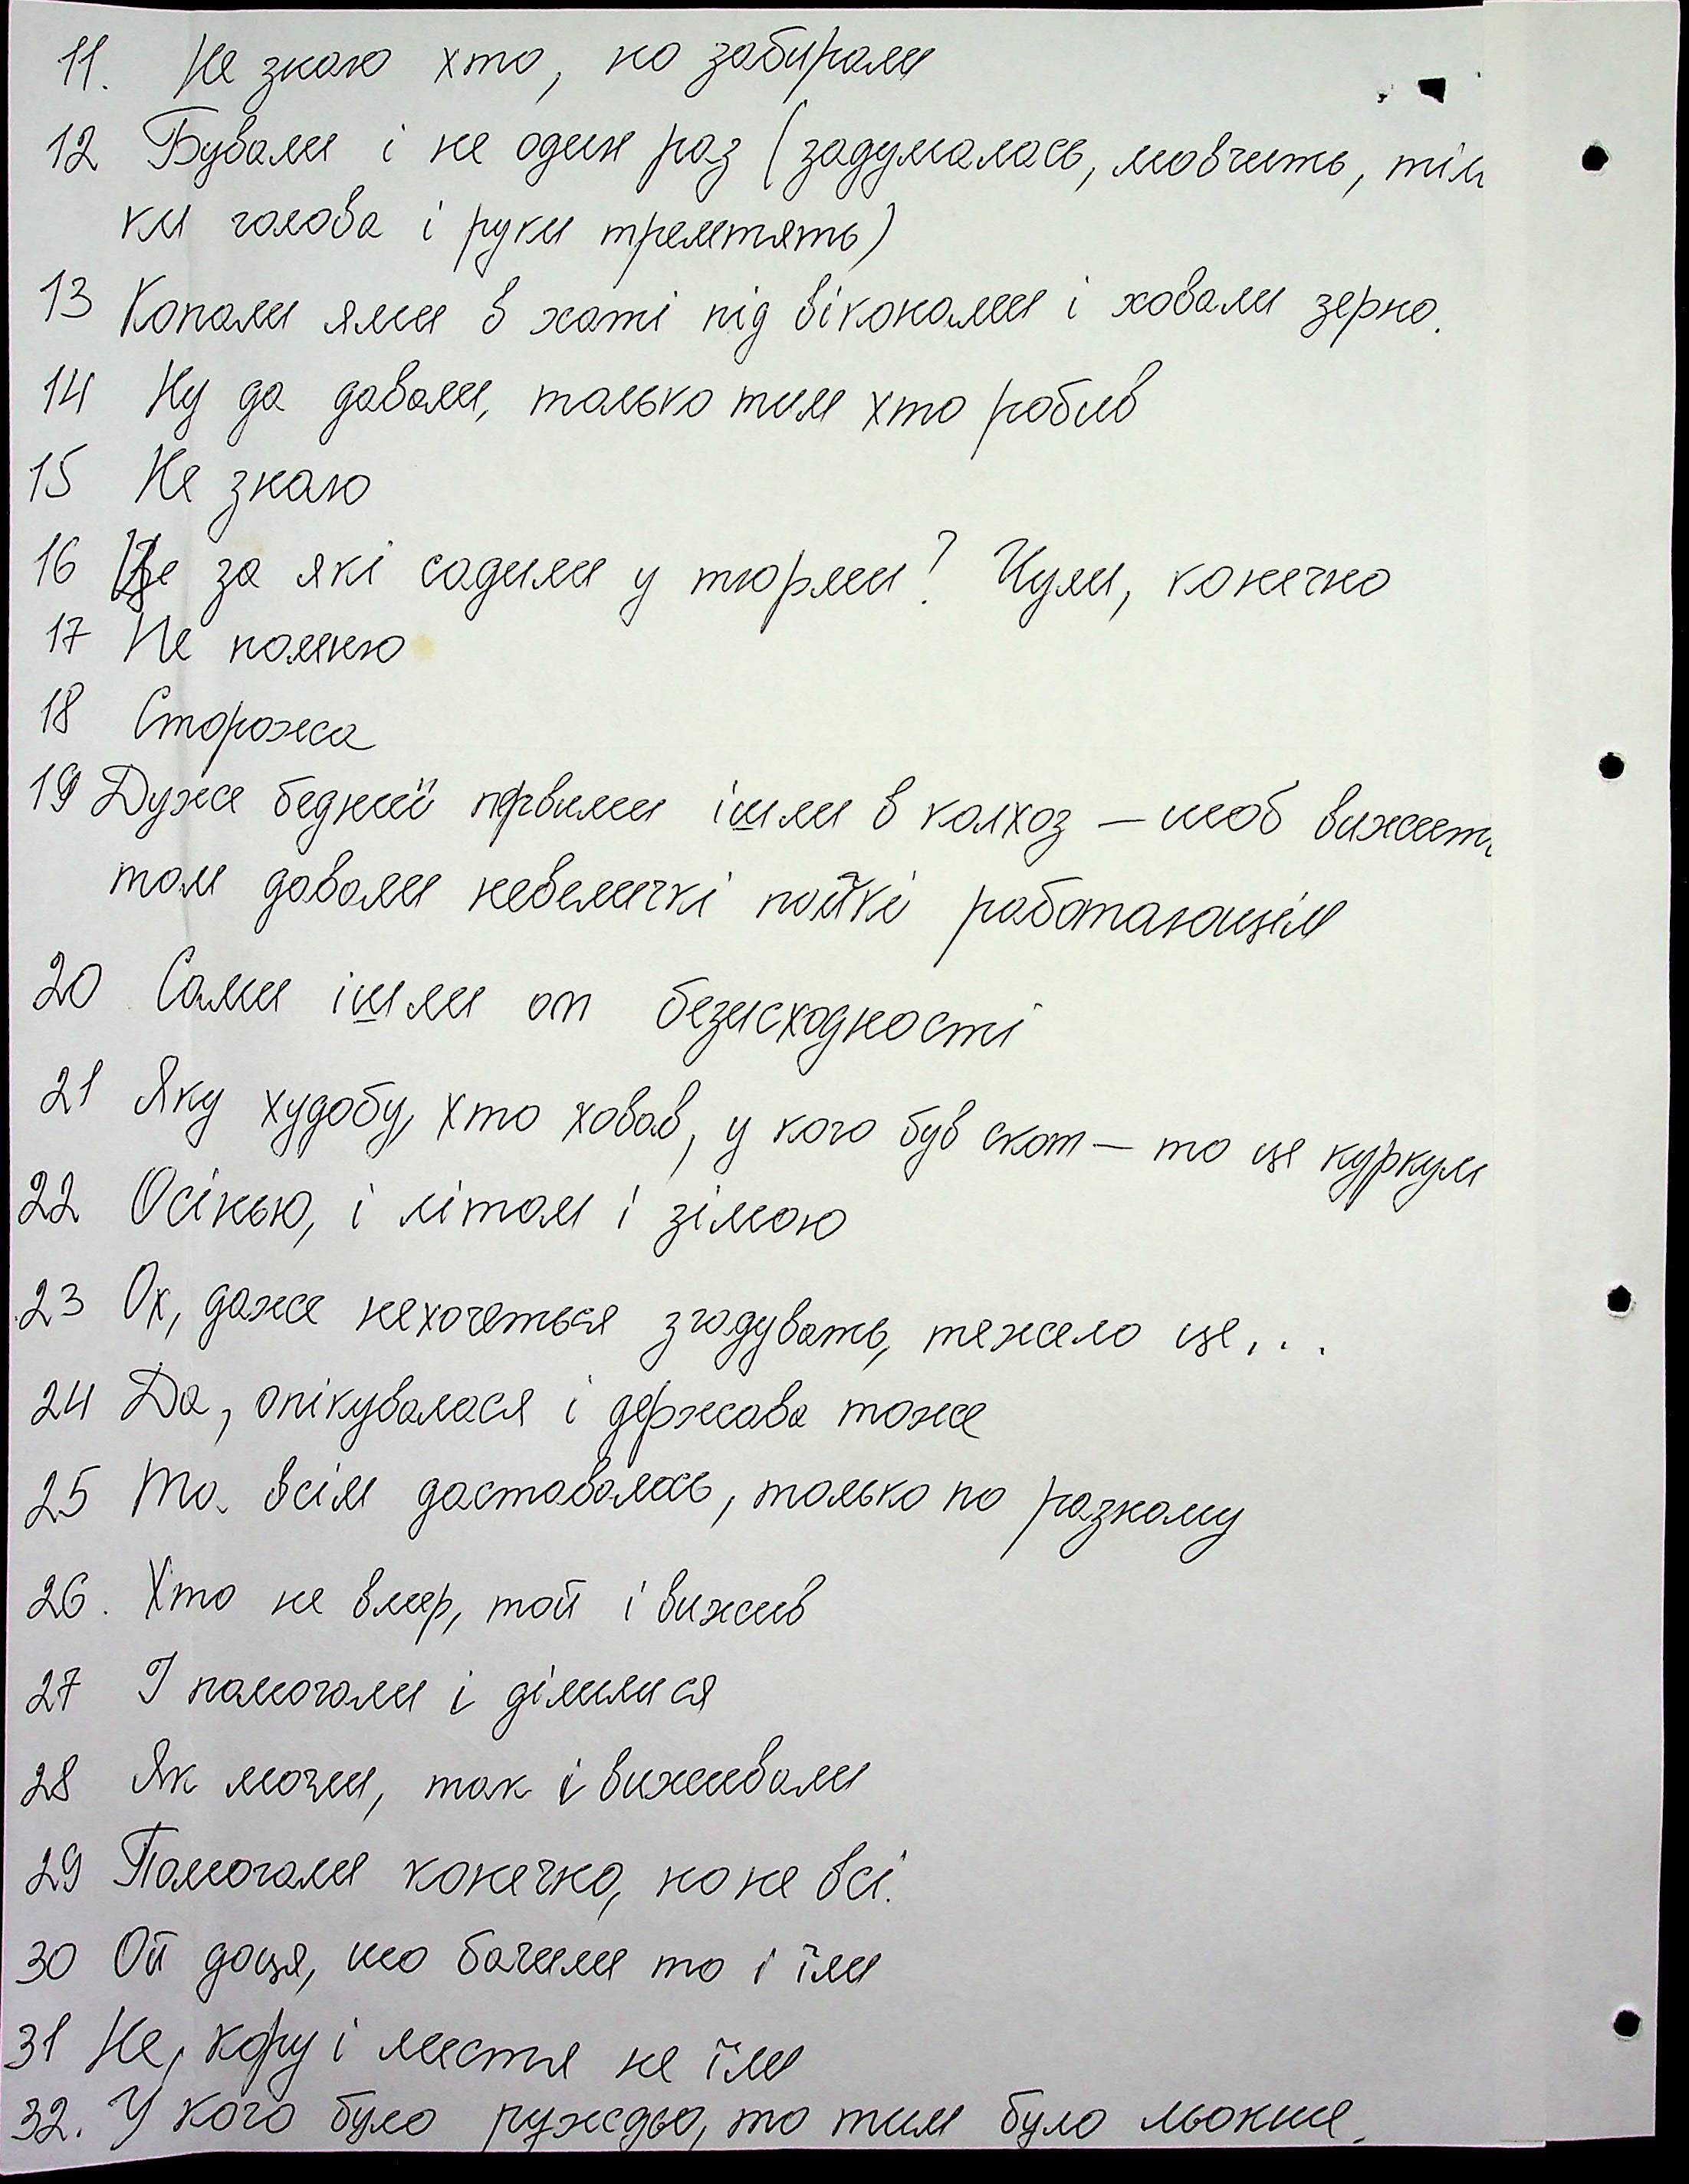 11. Не знаю хто, но забирали
12 Бували і не один раз (задумалась, мовчить, тіль
ки голова і руки тремтять)
13 Копали ями в хаті під віконами і ховали зерно.
14 Ну да давали, только тим хто робив
15 Не знаю
16 Це за які садили у тюрми? Чули, конечно
17 Не помню
18 Сторожа
19 Дуже бедниї первими ішли в колхоз – шоб вижить
там давали невелички пайкі работающім
20 Сами ішли от безисходності
21 Яку худобу, хто ховав, у кого був скот – то це куркули
22 Осінью, і літом і зімою
23 Ох, даже нехочеться згадувать, тяжело це...
24 Да, опікувалася і держава тоже
25 Та всім доставалось, только по разному
26. Хто не вмер, той і вижив
27 І памогали і ділилися
28 Як могли, так і виживали
29 Памогали конечно, но не всі.
30 Ой доця, шо бачили то і їли
31 Не, кору і листя не їли
32. У кого було ружьдьо, то тим було льокше.